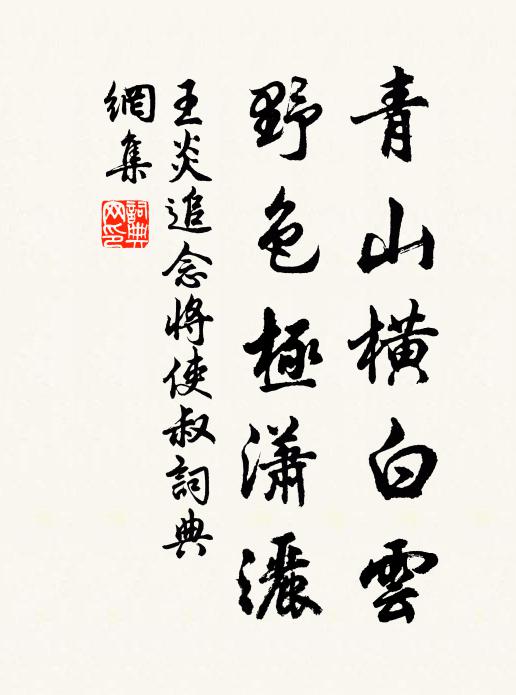 青山橫白雲
野色極瀟灑
王炎追念將使叔詞典
網集
詞典
网印